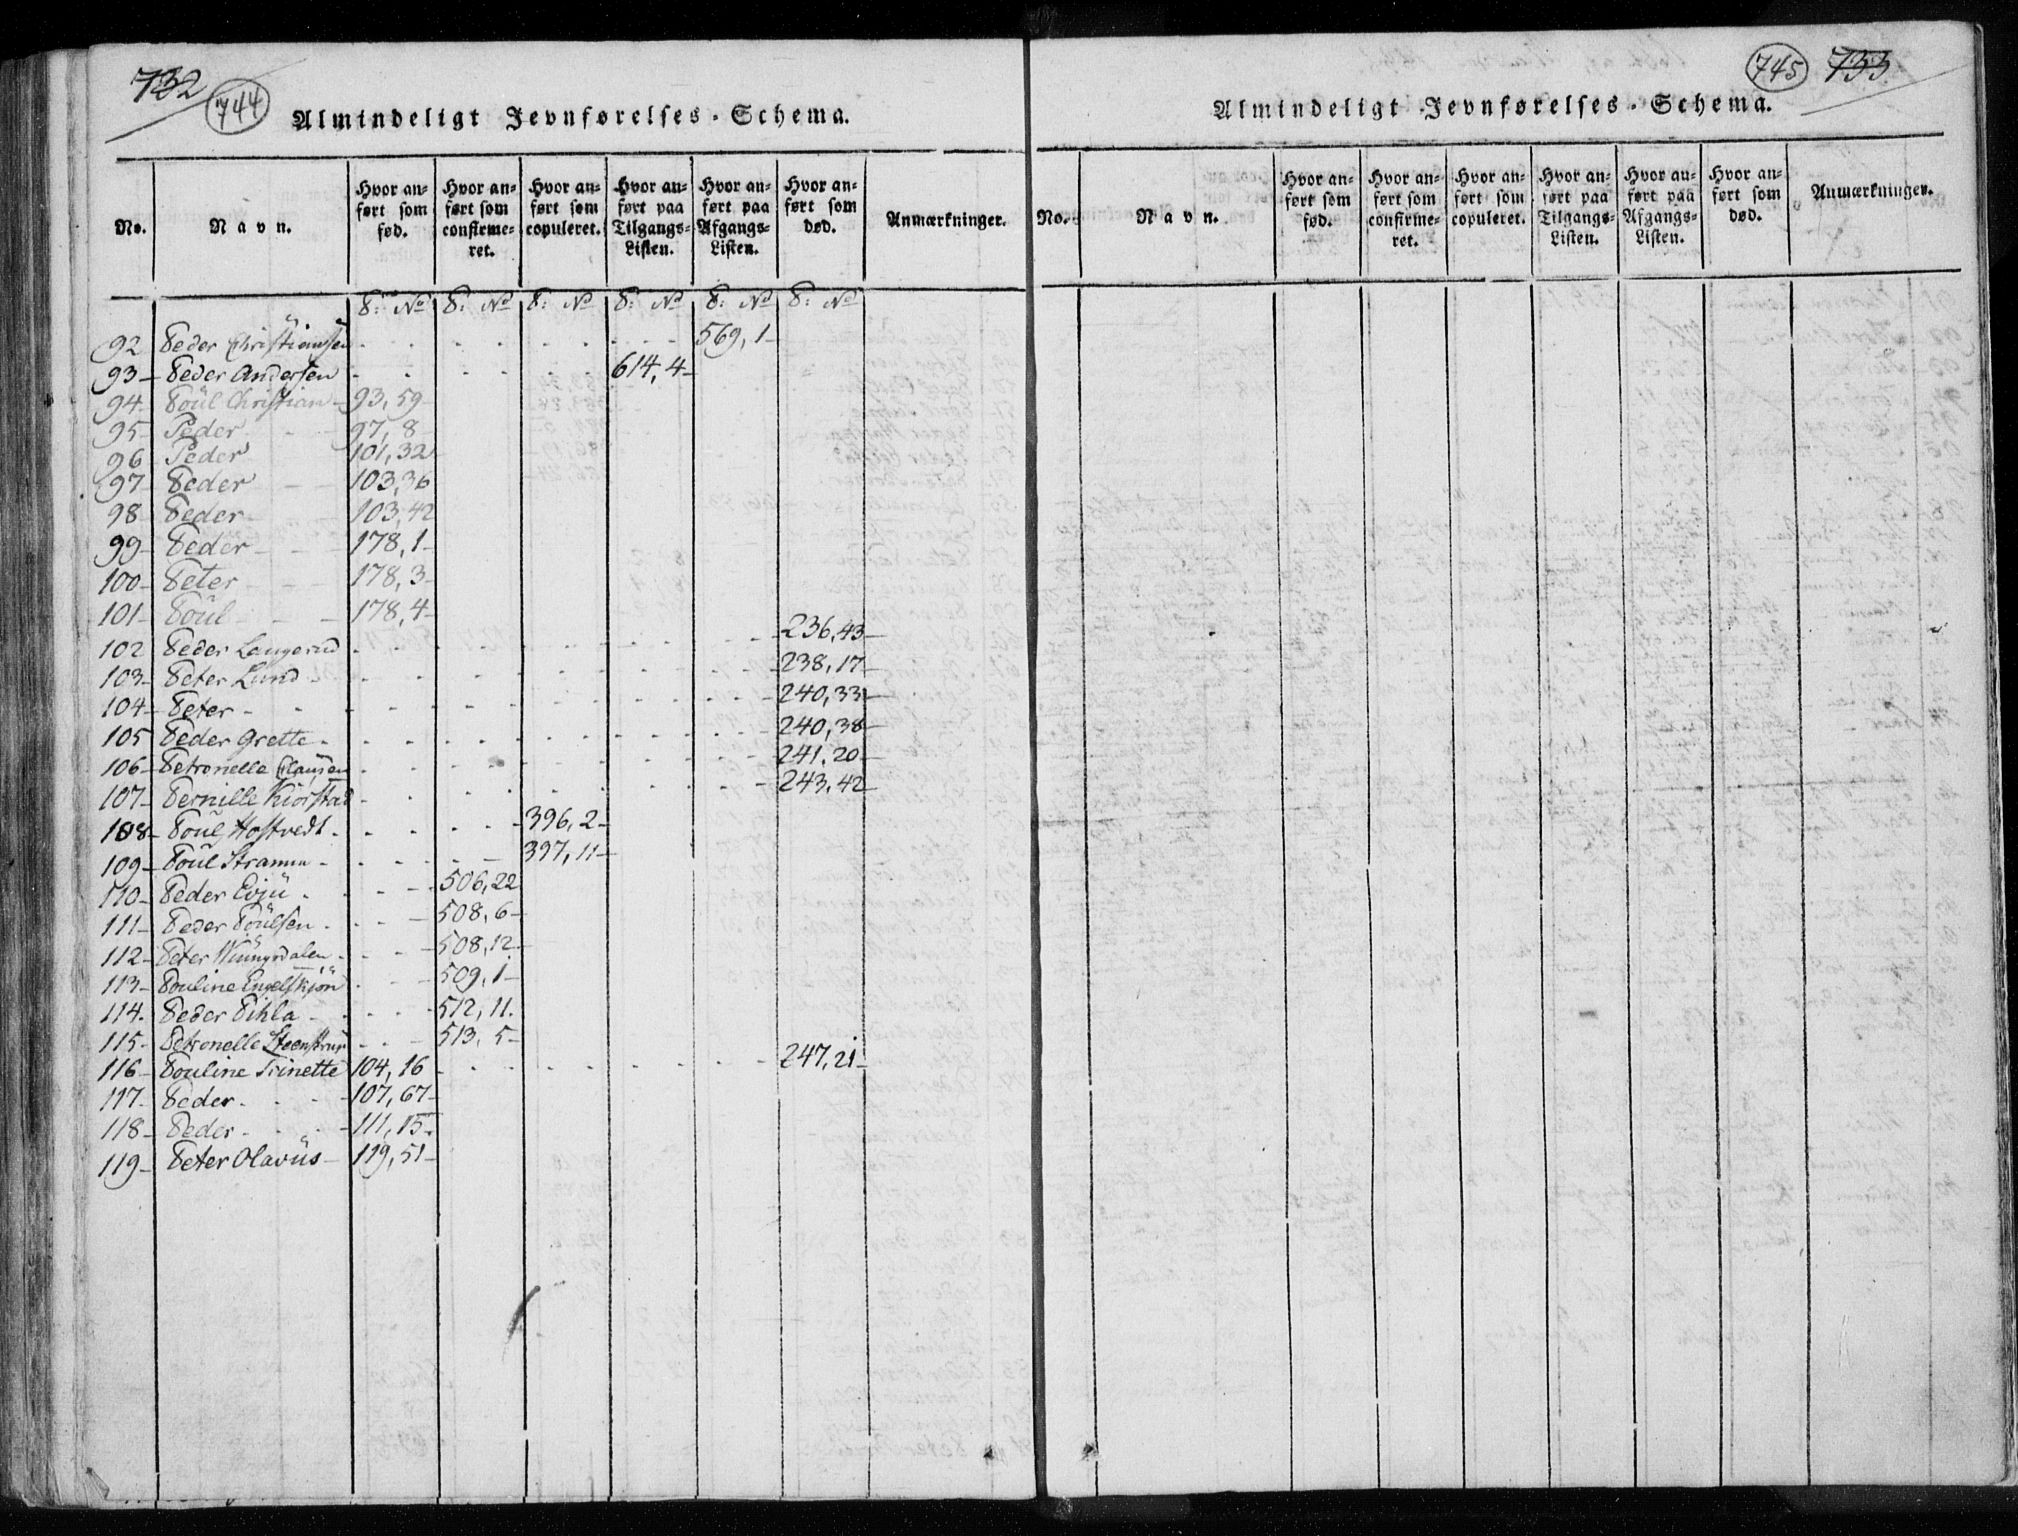 732
744
Almindeligt Jevnførelses-Schema.
No. | Navn. | Hvor anført som fød. | Hvor anført som confirmeret. | Hvor anført som copuleret. | Hvor anført paa Tilgangs-Listen. | Hvor anført paa Afgangs-Listen. | Hvor anført som død. | Anmærkninger.
S: No S: No S: No S: No S: No S: No
92 Peder Christiansen 569, 1
93 Peder Andersen 614, 4
94 Poül Christian 93, 59
95 Peder 97, 8
96 Peder 101, 32
97 Peder 103, 36
98 Peder 103, 42
99 Peder 178, 1
100 Peter 178, 3
101 Poül 178, 4
102 Peder Langerud 236, 43
103 Peter Lund 238, 17
104 Peter 240, 33
105 Peder Grette 240, 38
106 Petronelle Clausen 241, 20
107 Pernille Kiørstad 243, 42
108 Poül Hostvedt 396, 2
109 Poül Stramm 397, 11
110 Peder Evjü 506, 22
111 Peder Poülsen 508, 6
112 Peter 508, 12
113 Pouline Engelskjøn 509, 1
114. Peder Pihla 512, 11.
115 Petronelle Steenstrup 513, 5
116 Pouline Trinette 104, 16 247, 21
117 Peder 107, 67
118 Peder 111, 15.
119 Peter Olavüs 119, 51
745
733
Almindeligt Jevnførelses-Schema.
No. | Navn. | Hvor anført som fød. | Hvor anført som confirmeret. | Hvor anført som copuleret. | Hvor anført paa Tilgangs-Listen. | Hvor anført paa Afgangs-Listen. | Hvor anført som død. | Anmærkninger.